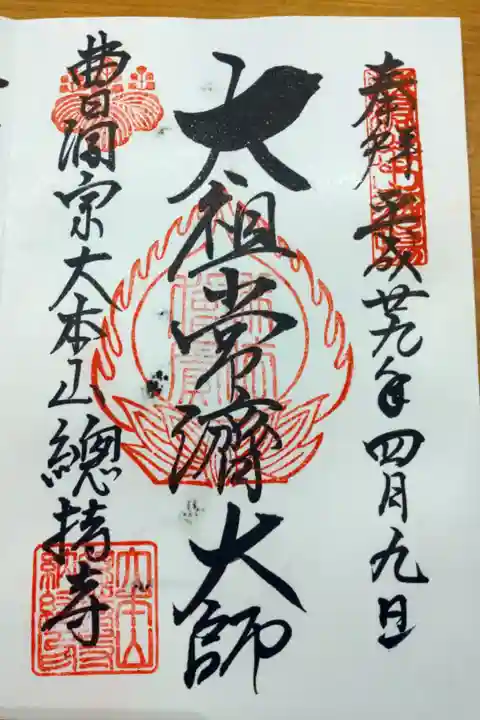 奉拜 平成廿九年四月九日
太祖常濟大師
曹洞宗大本山總持寺